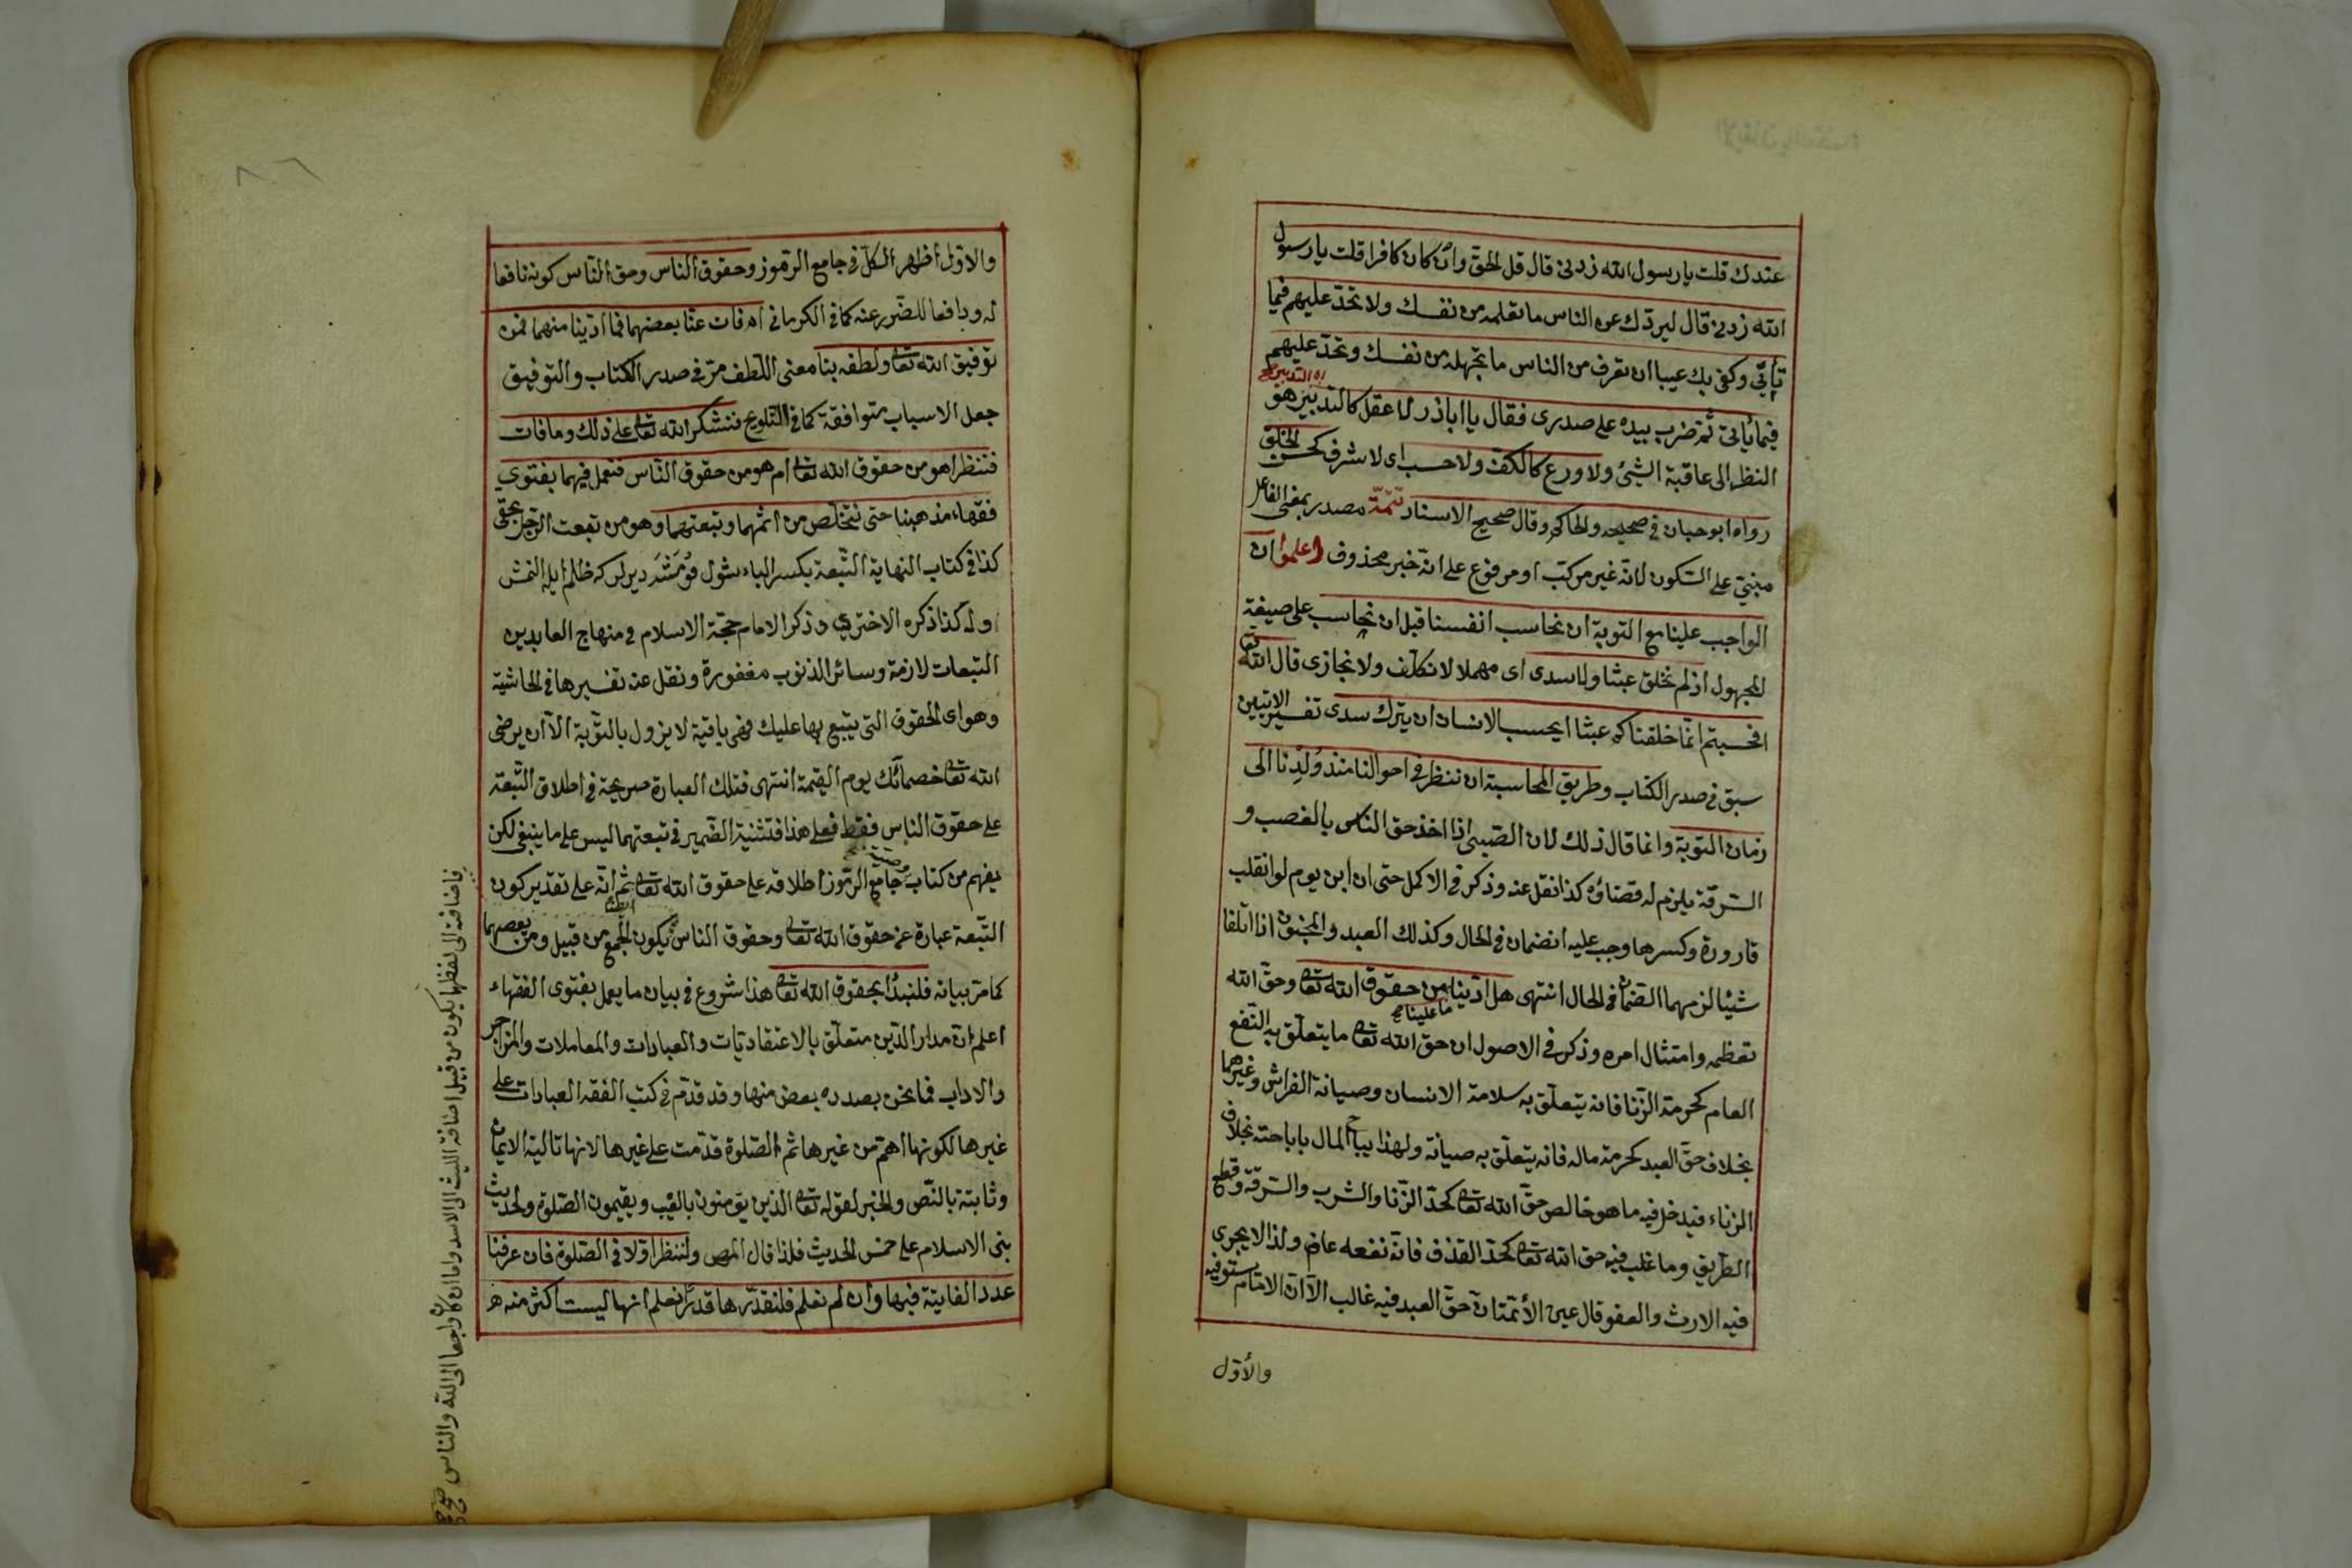 عندك قلت يا رسول الله زدنى قال قل الحق وان كان كافرا قلت يا رسول
الله زدنى قال ليردك عن الناس ما تعلمه من نفسك ولا تحدّ عليهم فيما
تأتى وكفى بك عيبا ان تعرف من الناس ما تجهله من نفسك وتحدّ عليهم
فيما يأتى ثم ضرب بيده على صدرى فقال يا اباذر لا عقل كالتدبير هو
النظر الى عاقبة الشئ ولا ورع كالكف ولا حسب اى لا شرف كحسن الخلق
رواه ابو حبان فى صحيحه والحاكم وقال صحيح الاسناد تتمّة مصدر بمعنى الفاعل
مبنىّ على السّكون لانّه غير مركّب او مرفوع على انّه خبر محذوف اعلموا ان
الواجب علينا مع التوبة ان نحاسب انفسنا قبل ان نحاسب على صيغة
المجهول اذ لم نخلق عبثا ولا سدى اى مهملا لا نكلّف ولا نجازى قال الله تعا
افحسبتم انّما خلقناكم عبثا ايحسب الانسان ان يترك سدى تفسير الايتين
سبق فى صدر الكتاب وطريق المحاسبة ان ننظر فى احوالنا منذ وُلِدْنا الى
زمان التوبة وانما قال ذلك لان الصّبى اذا اخذ حق الناس بالغصب و
السّرقة يلزم له قضاؤه كذا نقل عنه وذكر فى الاكمل حتى ان ابن يوم لو انقلب
قارورة وكسرها وجب عليه الضمان فى الحال وكذلك العبد والمجنون اذا اتلفا
شيئا لزمهما الضمان فى الحال انتهى هل ادّينا ما علينا من حقوق الله تعا وحقّ الله
تعظيمه وامتثال امره وذكر فى الاصول ان حق الله تعا ما يتعلّق به النّفع
العام كحرمة الزّنا فانه يتعلّق به سلامة الانسان وصيانة الفراش وغيرهما
بخلاف حقّ العبد كحرمة ماله فانه يتعلّق به صيانة ولهذا يباح المال باباحته بخلاف
الزناء فيدخل فيه ما هو خالص حقّ الله تعا كحدّ الزّنا والشرب والسّرقة وقطع
الطّريق وما غلب فيه حق الله تعا كحدّ القذف فانّه نفعه عام ولذا لا يجرى
فيه الارث والعفو قال عين الأئمّة انّ حقّ العبد فيه غالب الّا انّ الامام يستوفيه
والأوّل
والاوّل اظهر الكلّ فى جامع الرّموز وحقوق الناس وحق النّاس كونه نافعا
له ودافعا للضّرر عنه كما فى الكرمانى ام فات عنّا بعضهما فما ادّينا منهما فمن
توفيق الله تعا ولطفه بنا معنى اللّطف مرّ فى صدر الكتاب والتوفيق
جعل الاسباب متوافقة كما فى التّلويح فنشكر الله تعا على ذلك وما فات
فننظر اهو من حقوق الله تعا ام هو من حقوق النّاس فنعمل فيهما بفتوى
فقهاء مذهبنا حتى نتخلّص من اثمهما وتبعتهما وهو من تبعت الرّجل بحقّى
كذا فى كتاب النهاية التّبعة بكسر الباء
وله كذا ذكره الاخترى وذكر الامام حجّة الاسلام فى منهاج العابدين
التّبعات لازمة وسائر الذنوب مغفورة ونقل عنه تفسيرها فى الحاشية
وهو اى الحقوق التى يتّبع بها عليك فهى باقية لا يزول بالتّوبة الّا ان يرضى
الله تعا خصمائك يوم القيمة انتهى فتلك العبارة صريحة فى اطلاق التّبعة
على حقوق الناس فقط فعلى هذا فتثنية الضّمير فى تبعتهما ليس على ما ينبغى لكن
يفهم من كتاب جامع الرّموز اطلاقه على حقوق الله تعا ايضا ثم انّه على تقدير كون
التّبعة عبارة عن حقوق الله تعا وحقوق الناس يكون الجمع من قبيل ومن يعصهما
كما مرّ بيانه فلنبدأ بحقوق الله تعا هذا شروع فى بيان ما يعمل بفتوى الفقهاء
اعلم انّ مدار الدّين متعلّق بالاعتقاديّات والعبادات والمعاملات والمزاجر
والاداب فما نحن بصدده بعض منها وقد قدّم فى كتب الفقه العبادات على
غيرها لكونها اهمّ من غيرها ثم الصّلوة قدّمت على غيرها لانها تالية الايمان
وثابتة بالنّص والخبر لقوله تعا الذين يؤمنون بالغيب ويقيمون الصّلوة ولحديث
بنى الاسلام على خمس الحديث فلذا قال المص ولننظر اوّلا فى الصّلوة فان عرفنا
عدد الفايتة فيها وان لم نعلم فلنقدّرها قدرًا نعلم انها ليست اكثر منه
فاضافته الى لفظها يكون من قبيل اضافة الليث الى الاسد واما ان كان راجعا الى الله والناس